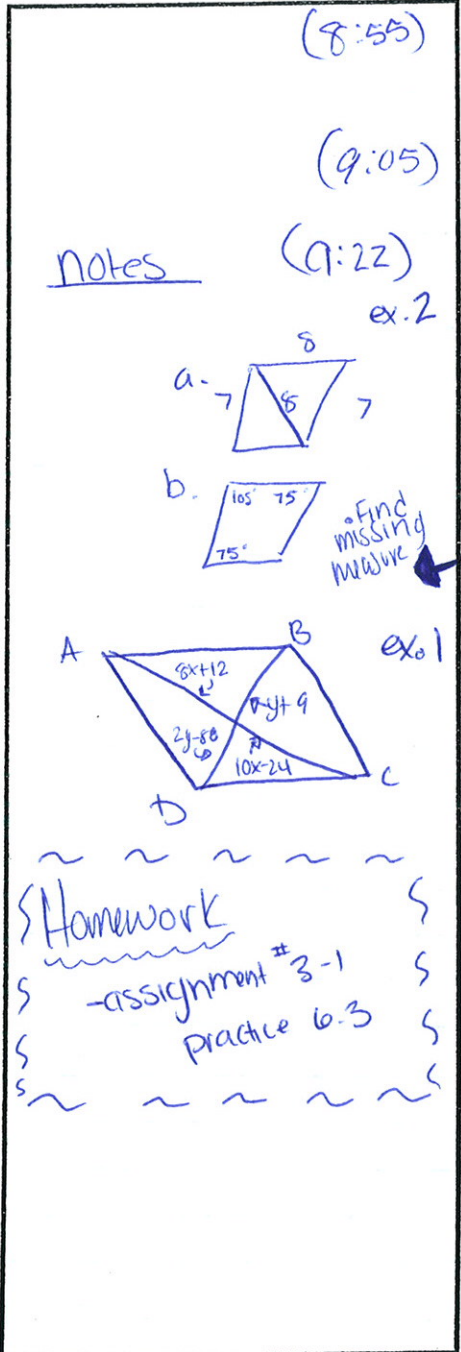 (8:55)
(9:05)
notes (9:22)
ex.2
8
a. 7 8 7
b. 105° 75°
75°
. Find
missing
measure
A B ex.1
8x+12
y+9
10x-24
D C
Homework
-assignment #3-1
practice 6.3